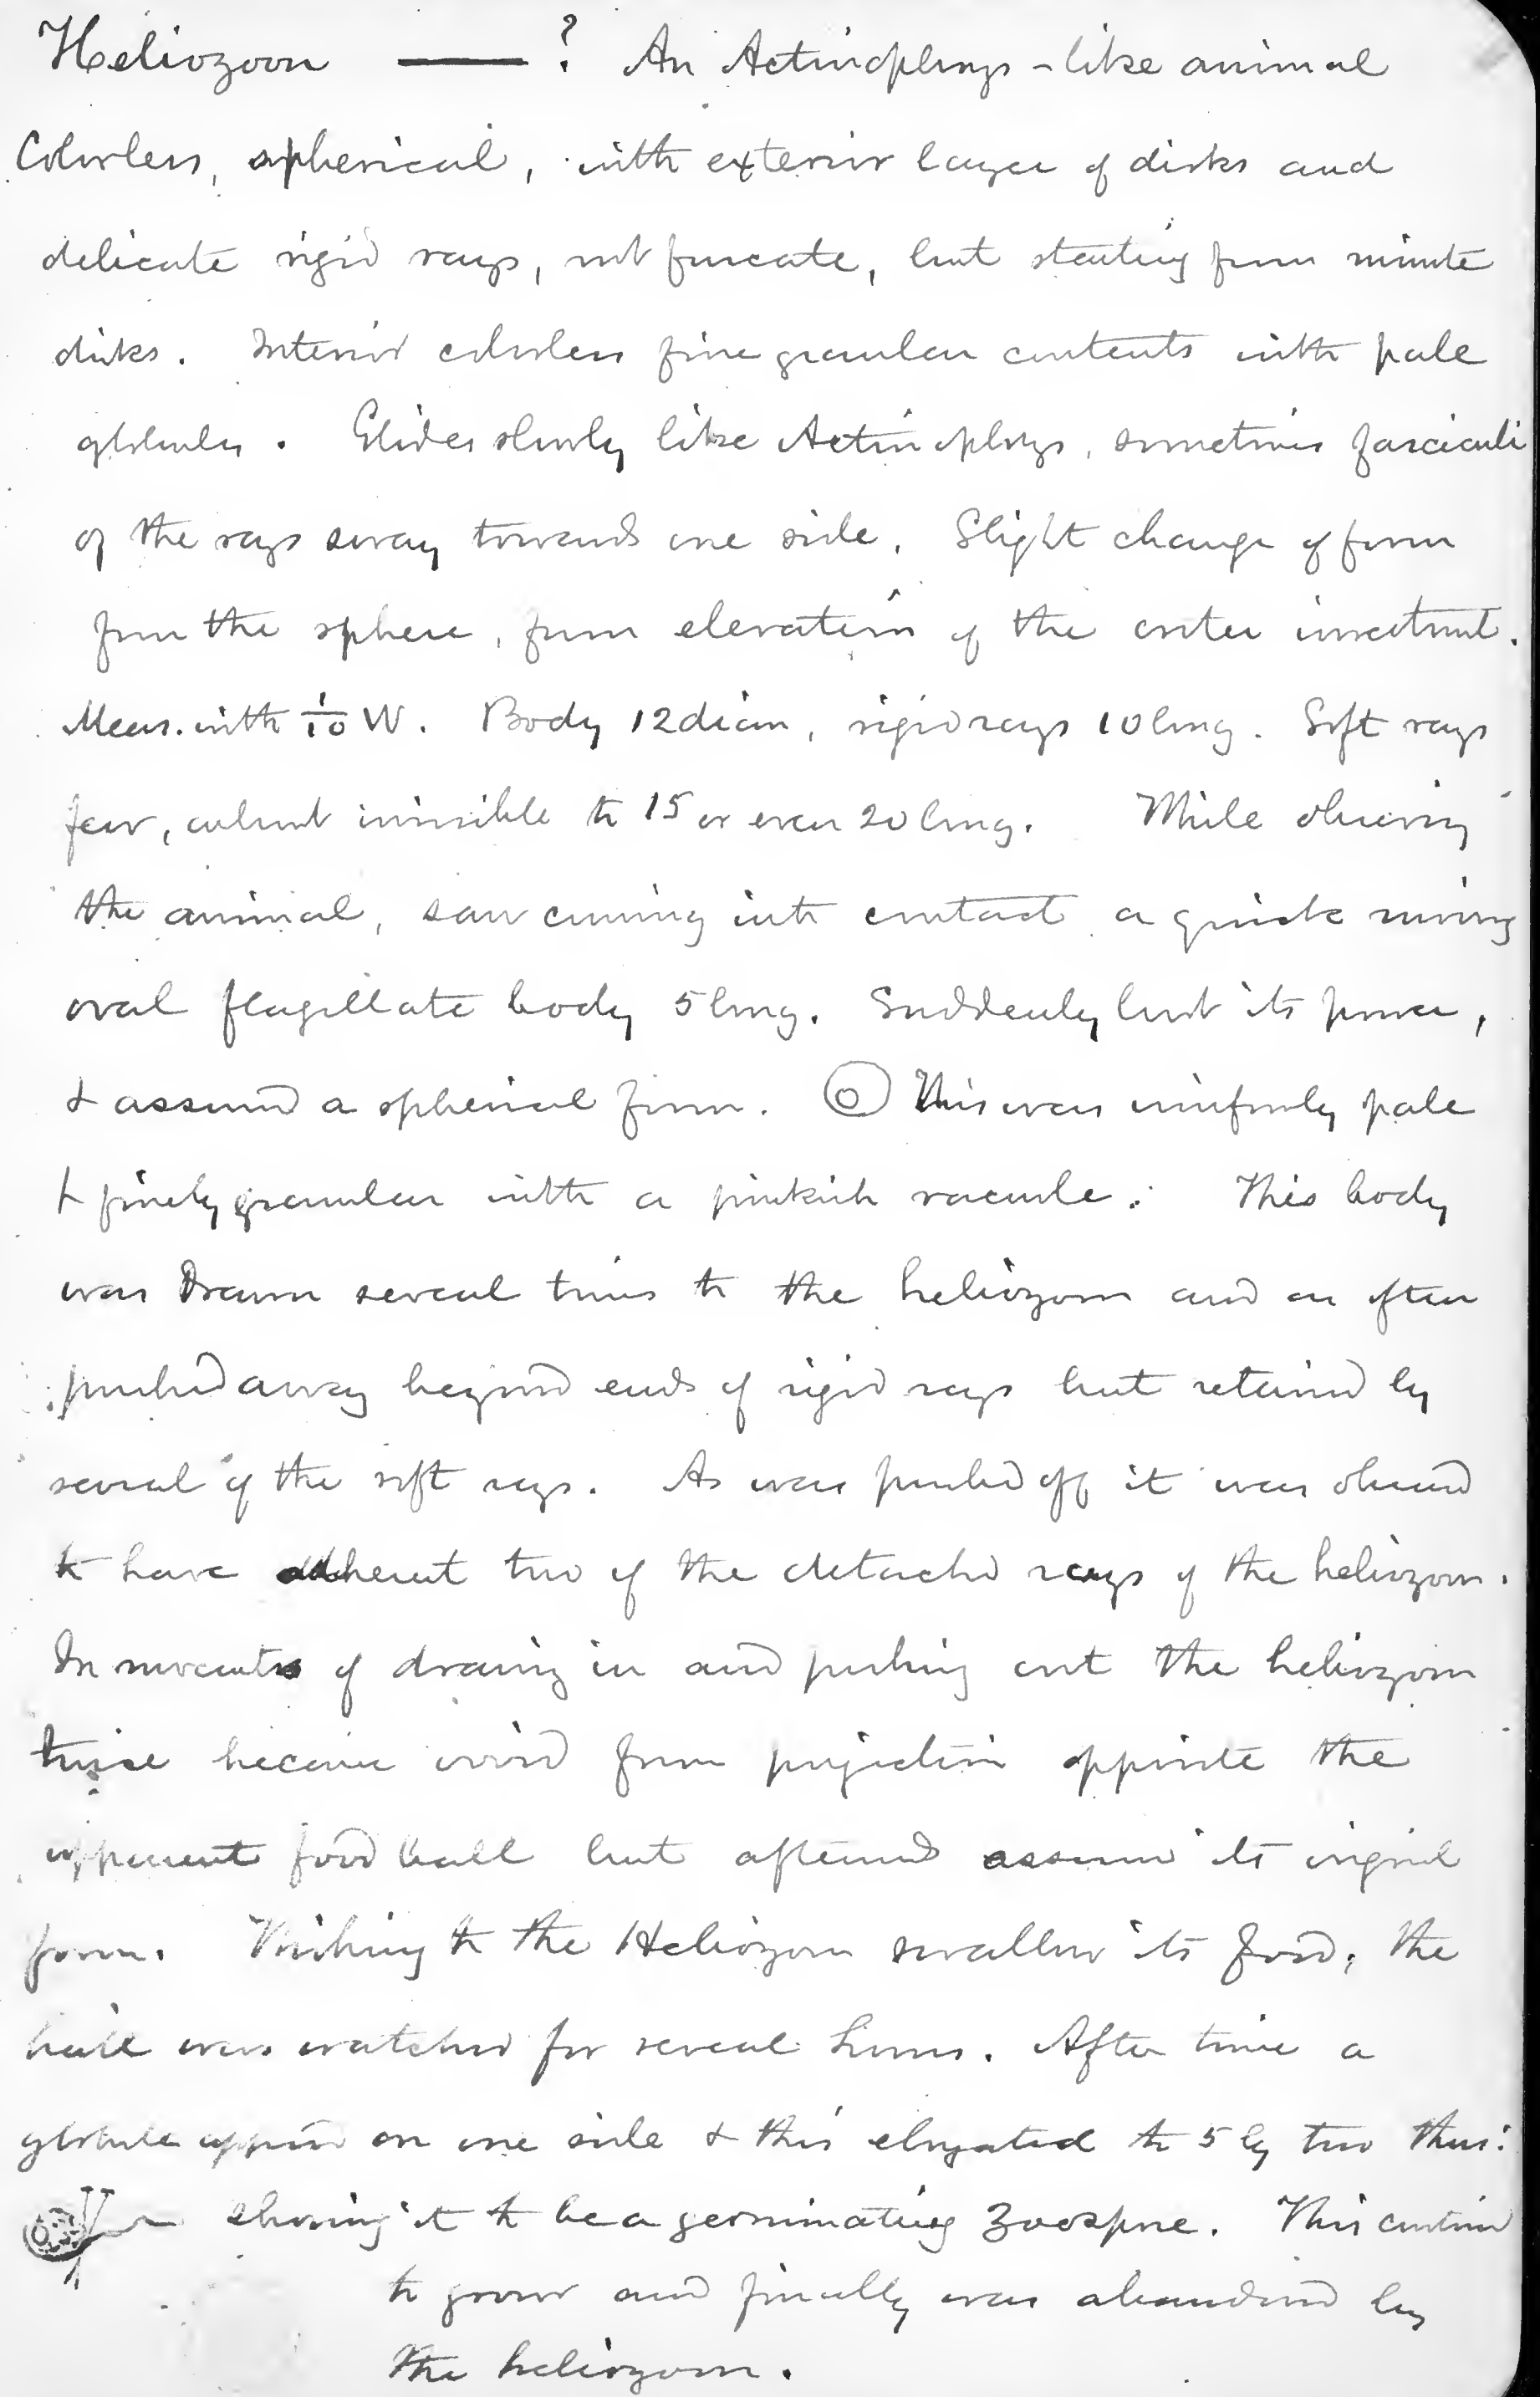 Heliozoon —— ? An Actinophrys-like animal
Colorless, spherical, with exterior layer of disks and
delicate rigid rays, not furcate, but starting from minute
disks. Interior colorless fine granular contents with pale
globules. Glides slowly like Actinophrys, sometimes fasciculi
of the rays sway towards one side. Slight change of form
from the sphere, from elevation of the outer investment.
Meas. with 1/10 W. Body 12 diam, rigid rays 10 long. Soft rays
few, almost invisible to 15 or even 20 long. While observing
the animal, saw coming into contact a quick moving
oval flagellate body 5 long. Suddenly lost its power,
& assumed a spherical form. This was uniformly pale
& finely granular with a pinkish vacuole. This body
was drawn several times to the heliozoon and as often
pushed away beyond ends of rigid rays but retained by
several of the soft rays. As was pushed off it was observed
to have adherent two of the detached rays of the heliozoon.
In movements of drawing in and pushing out the heliozoon
twice became ovoid from projection opposite the
apparent food ball but afterwards assumed its original
form. Wishing to the Heliozoon swallow its food, the
ball was watched for several hours. After time a
globule appeared on one side & this elongated to 5 by two thus:
showing it to be a germinating zoospore. This continued
to grow and finally was abandoned by
the heliozoon.